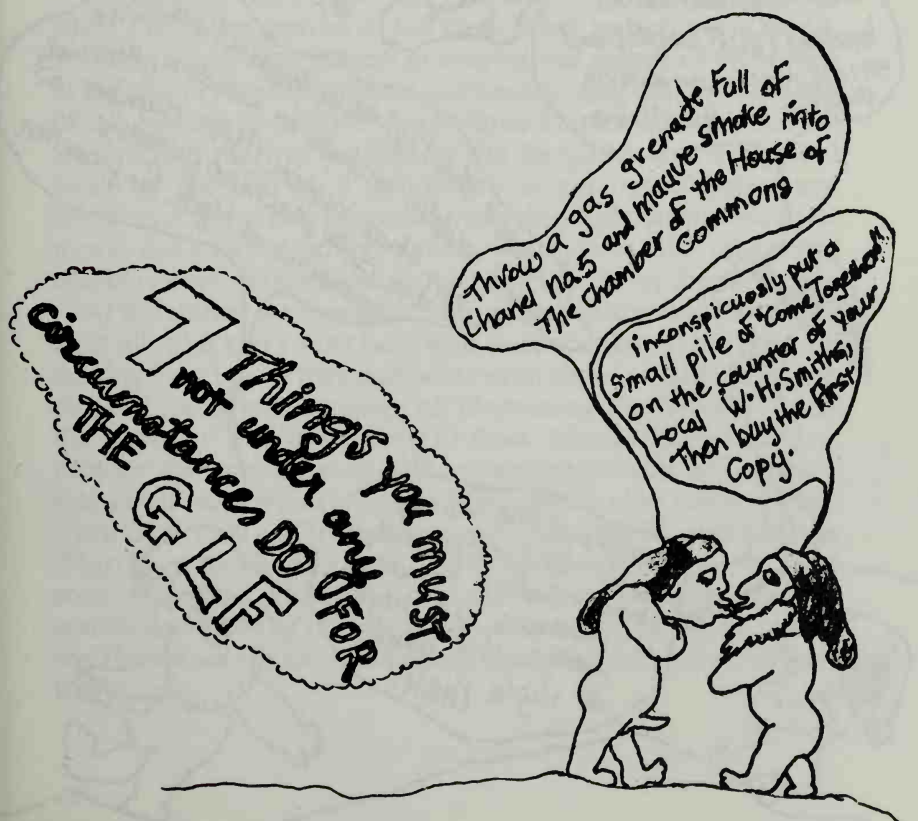 7 Things you must
not under any
circumstances DO FOR
THE GLF
Throw a gas grenade Full of
Chanel no.5 and mauve smoke into
The chamber of the House of
Commons
inconspicuously put a
small pile of "Come Together"
on the counter of your
Local W.H.Smiths,
Then buy the First
Copy.